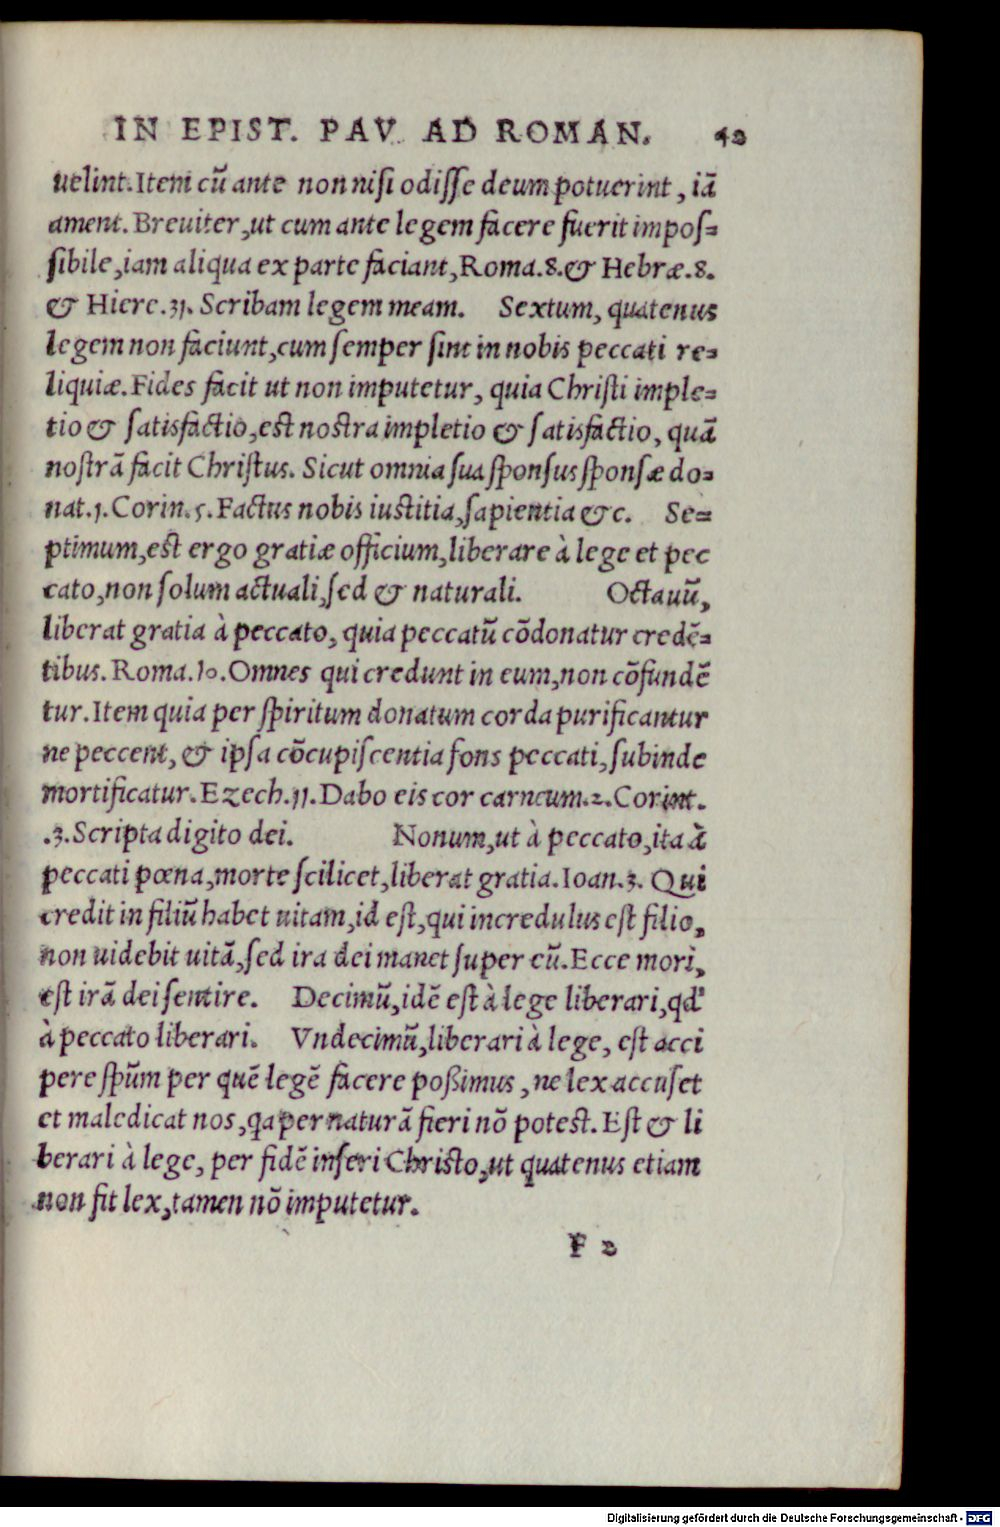 IN EPIST. PAV. AD ROMAN. 42
uelint. Item cū ante non nisi odisse deum potuerint, iā
ament. Breuiter, ut cum ante legem facere fuerit impos-
sibile, iam aliqua ex parte faciant, Roma.8. & Hebræ.8.
& Hiere.31. Scribam legem meam. Sextum, quatenus
legem non faciunt, cum semper sint in nobis peccati re-
liquiæ. Fides facit ut non imputetur, quia Christi imple-
tio & satisfactio, est nostra impletio & satisfactio, quā
nostrā facit Christus. Sicut omnia sua sponsus sponsæ do-
nat.1. Corin.5. Factus nobis iustitia, sapientia &c. Se-
ptimum, est ergo gratiæ officium, liberare à lege et pec
cato, non solum actuali, sed & naturali. Octauū,
liberat gratia à peccato, quia peccatū cōdonatur credē-
tibus. Roma.10. Omnes qui credunt in eum, non cōfundē
tur. Item quia per spiritum donatum corda purificantur
ne peccent, & ipsa cōcupiscentia fons peccati, subinde
mortificatur. Ezech.11. Dabo eis cor carneum.2. Corint.
.3. Scripta digito dei. Nonum, ut à peccato, ita à
peccati pœna, morte scilicet, liberat gratia. Ioan.3. Qui
credit in filiū habet uitam, id est, qui incredulus est filio,
non uidebit uitā, sed ira dei manet super eū. Ecce mori,
est irā dei sentire. Decimū, idē est à lege liberari, qd'
à peccato liberari. Vndecimū, liberari à lege, est acci
pere spūm per quē legē facere poßimus, ne lex accuset
et maledicat nos, qa per naturā fieri nō potest. Est & li
berari à lege, per fidē inseri Christo, ut quatenus etiam
non fit lex, tamen nō imputetur.
F 2
Digitalisierung gefördert durch die Deutsche Forschungsgemeinschaft - DFG